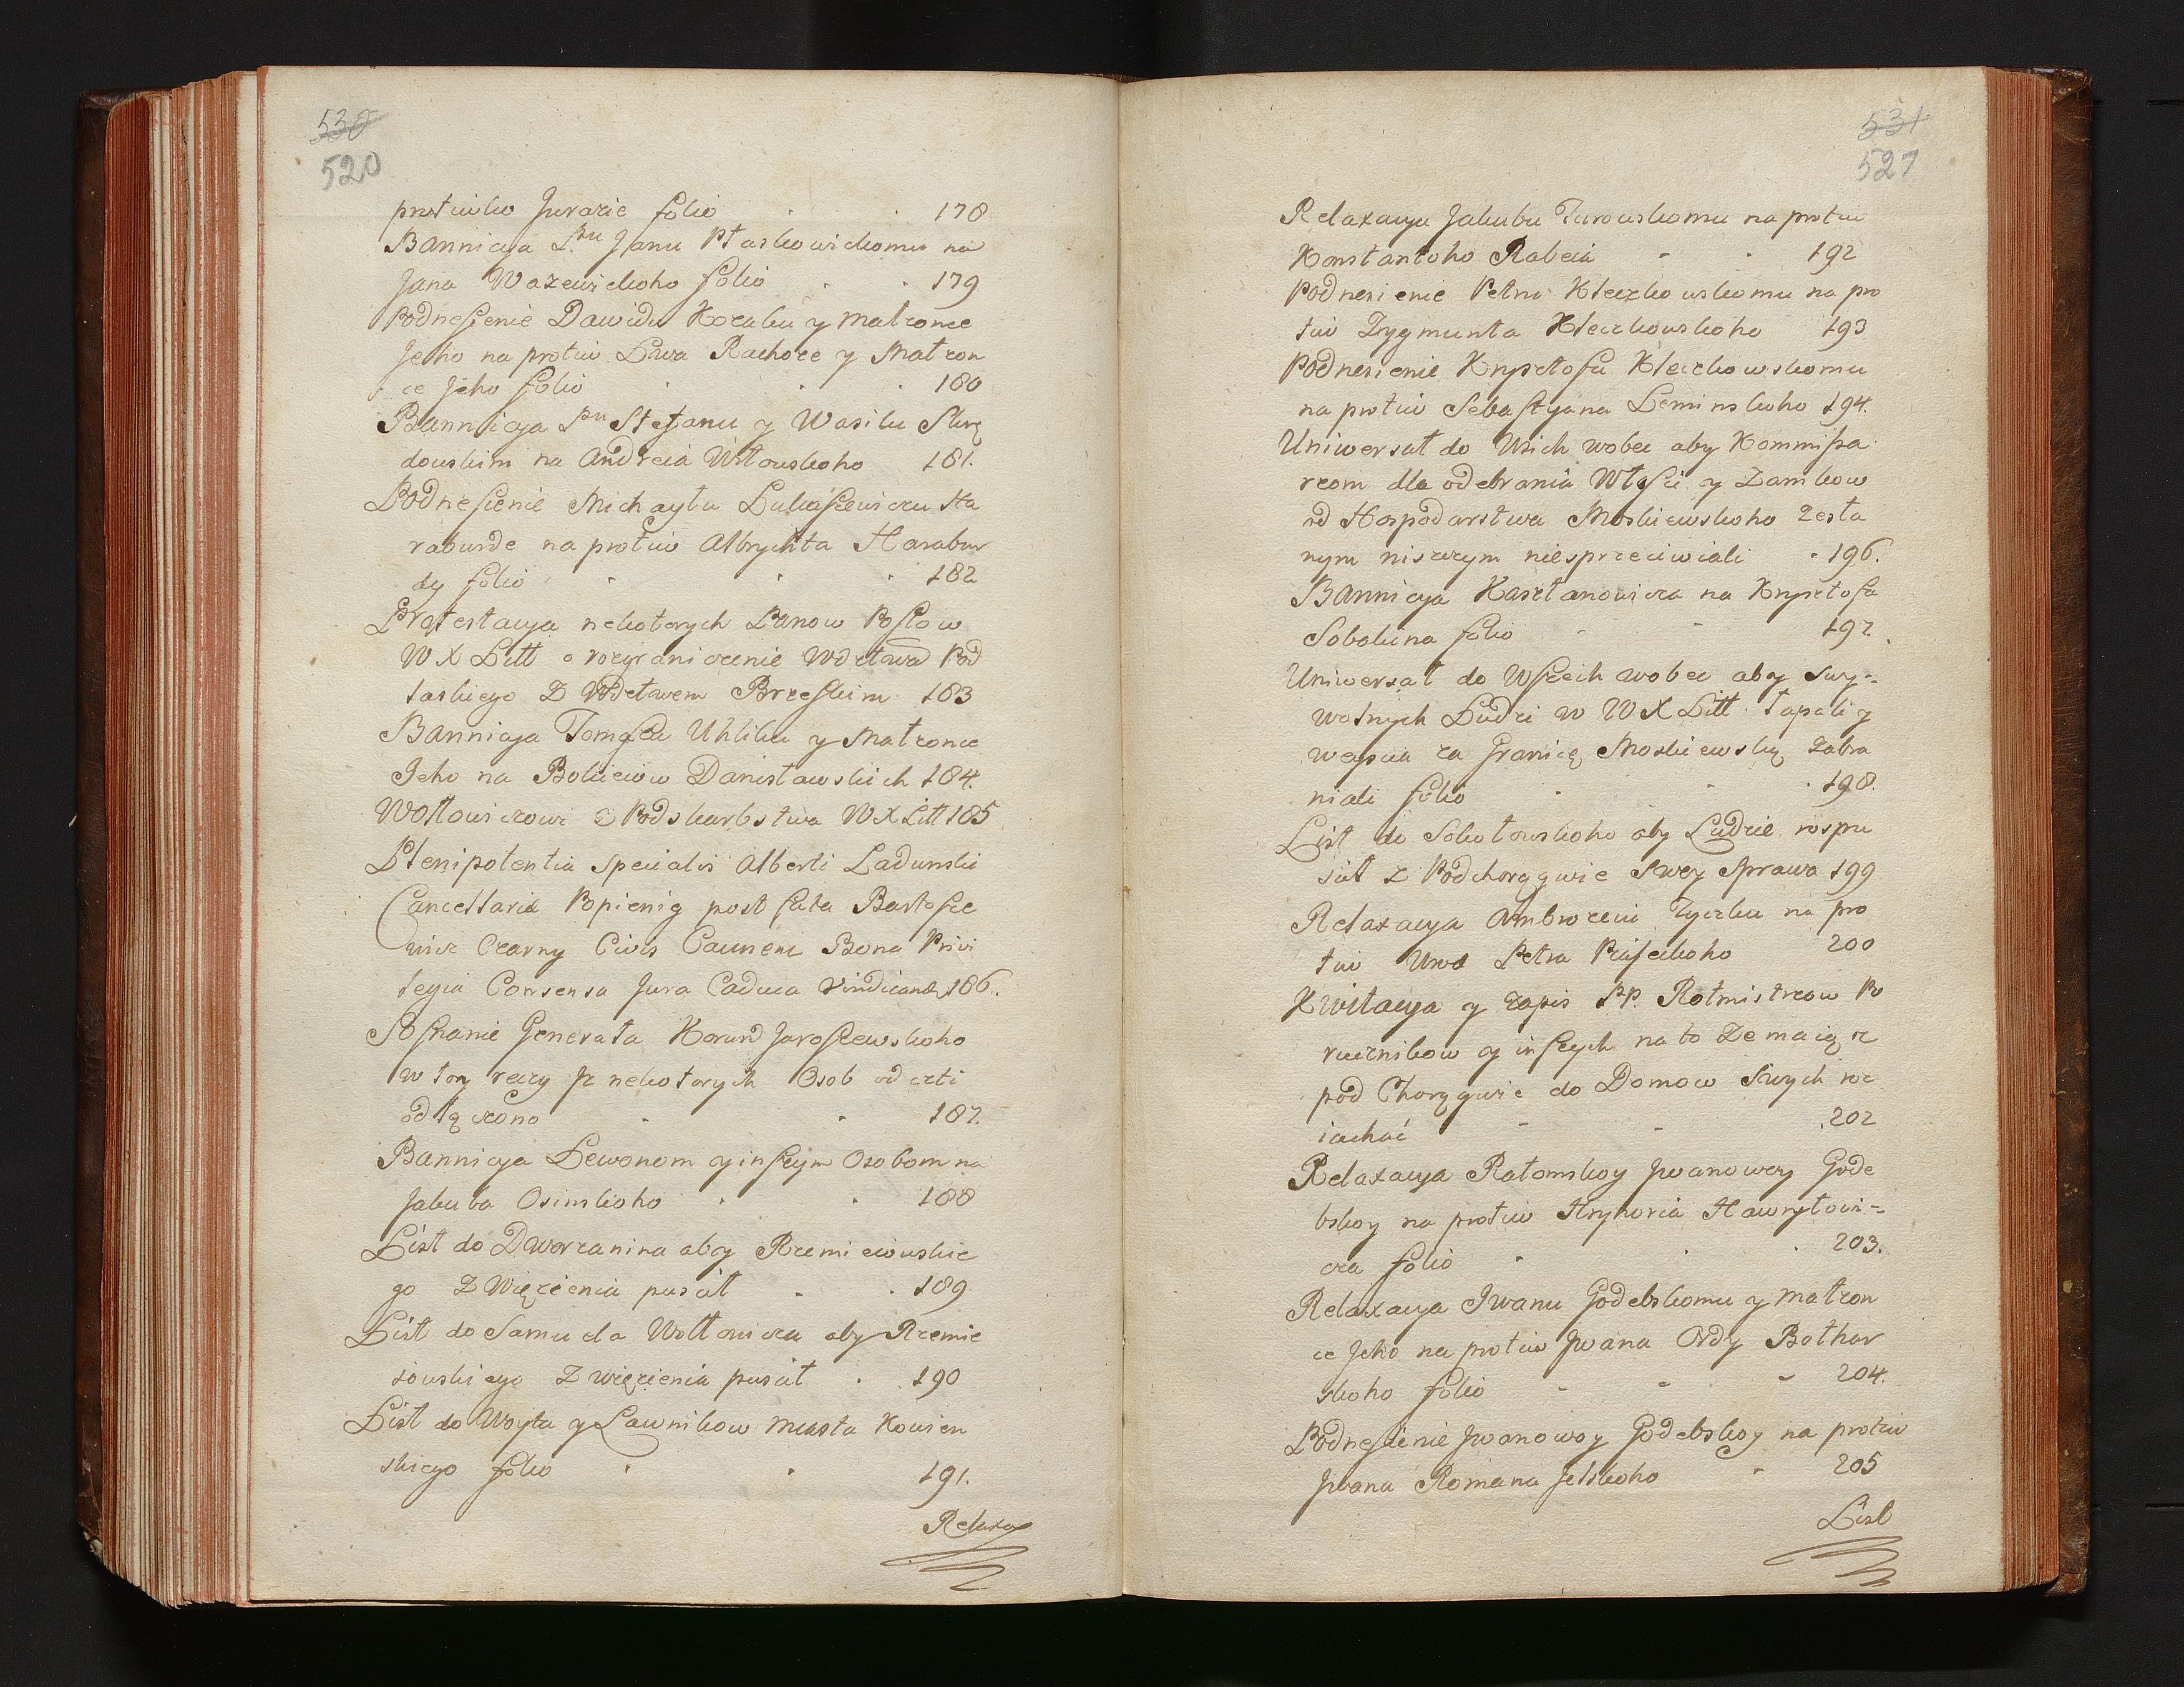 530
520
protiwko Jurazie folio 178
Bannicya Pnu Janu Ptaskowickomu na
Jana Wazewickoho folio 179
Podneſienie Dawidu Kozaku y Malzonce
Jeho na protiw Lwa Rachoze y Małzon
ce Jeho folio 180
Bannicya Pnu Stefanu y Wasilu Słuę
dowskim na Andreia Witowskoho 181.
Podneſienie Michayłu Łukaſzewiczu Ha
raburde na protiw Albrychta Harabur
dy folio 182
Proteſtacya nekotorych Panow Poſłow
W X Litt o rozgraniczenie Wdztwa Pod
laskiego Z Wdztwem Brzeſkim 183
Bannicya Tomaſzu Uhliku y Małzonce
Jeho na Bokieiow Danisławskich 184.
Wołłowiczowi  Podskarbstwa W X Litt 185
Plenipotentia Specialis Alberti Ladunski
Cancellariæ Popienię post fata Bartoſze
wicz Czarny Civis Caunens Bona Privi
legia Consensa Jura Caduca vindicandi 186.
Soſnanie Generała Korund Jaroſzewskoho
w toy reczy Jz nekotorych Osob od czti
odłączono 187.
Bannicya Lewonom y inſzym Osobom na
Jakuba Osinskoho 188
List do Dworzanina aby Rzemieiewskie
go Z Więzienia puscił 189
List do Samuela Wołłowicza aby Rzemie
iowskiego Z więzienia puscił 190
List do Woyta y Ławnikow Miasta Kowien
skiego folio 191.
Relaxa
531
521
Relaxacya Jakubu Turowskomu na protiw
Konstantoho Rabeia 192
Podnesienie Petru Kleczkowskomu na pro
tiw Zygmunta Kleczkowskoho 193
Podnesienie Krysztofu Kleczkowskomu
na protiw Sebaſtyana Leminskoho 194.
Uniwersał do Wsich wobec aby Kommiſsa
rzom dla odebrania Włoſci y Zamkow
od Hospodarstwa Moskiewskoho Zesła
nym niszczym niesprzeciwiali 196.
Bannicya Kasztanowicza na Krysztofa
Sobakina folio 197.
Uniwersał do Wſzech wobec aby Swy-
wolnych Ludzi w W X Litt łapali y
weyscia za Granicę Moskiewskę Zabra
niali folio 198.
List do Sokołowskoho aby Ludzie rospu
scił z Podchorągwie Swey Sprawa 199
Relaxacya Ambrozeiu Tyczku na pro
tiw Urod Petra Piaſeckoho 200
Kwitacya y zapis P.P. Rotmistrzow Po
rucznikow y inſzych na to Ze maią z
pod Chorągwie do Domow Swych roz
iachać 202
Relaxacya Ratomskoy Jwanowey Gode
bskoy na protiw Hryhoria Hawryłowi-
cza folio 203.
Relaxacya Jwanu Godebskomu y małzon
ce Jeho na protiw Jwana Ordy Bołhar
skoho folio 204.
Podneſienie Jwanowoy Godebskoy na protiw
Jwana Romana Jelskoho 205
List